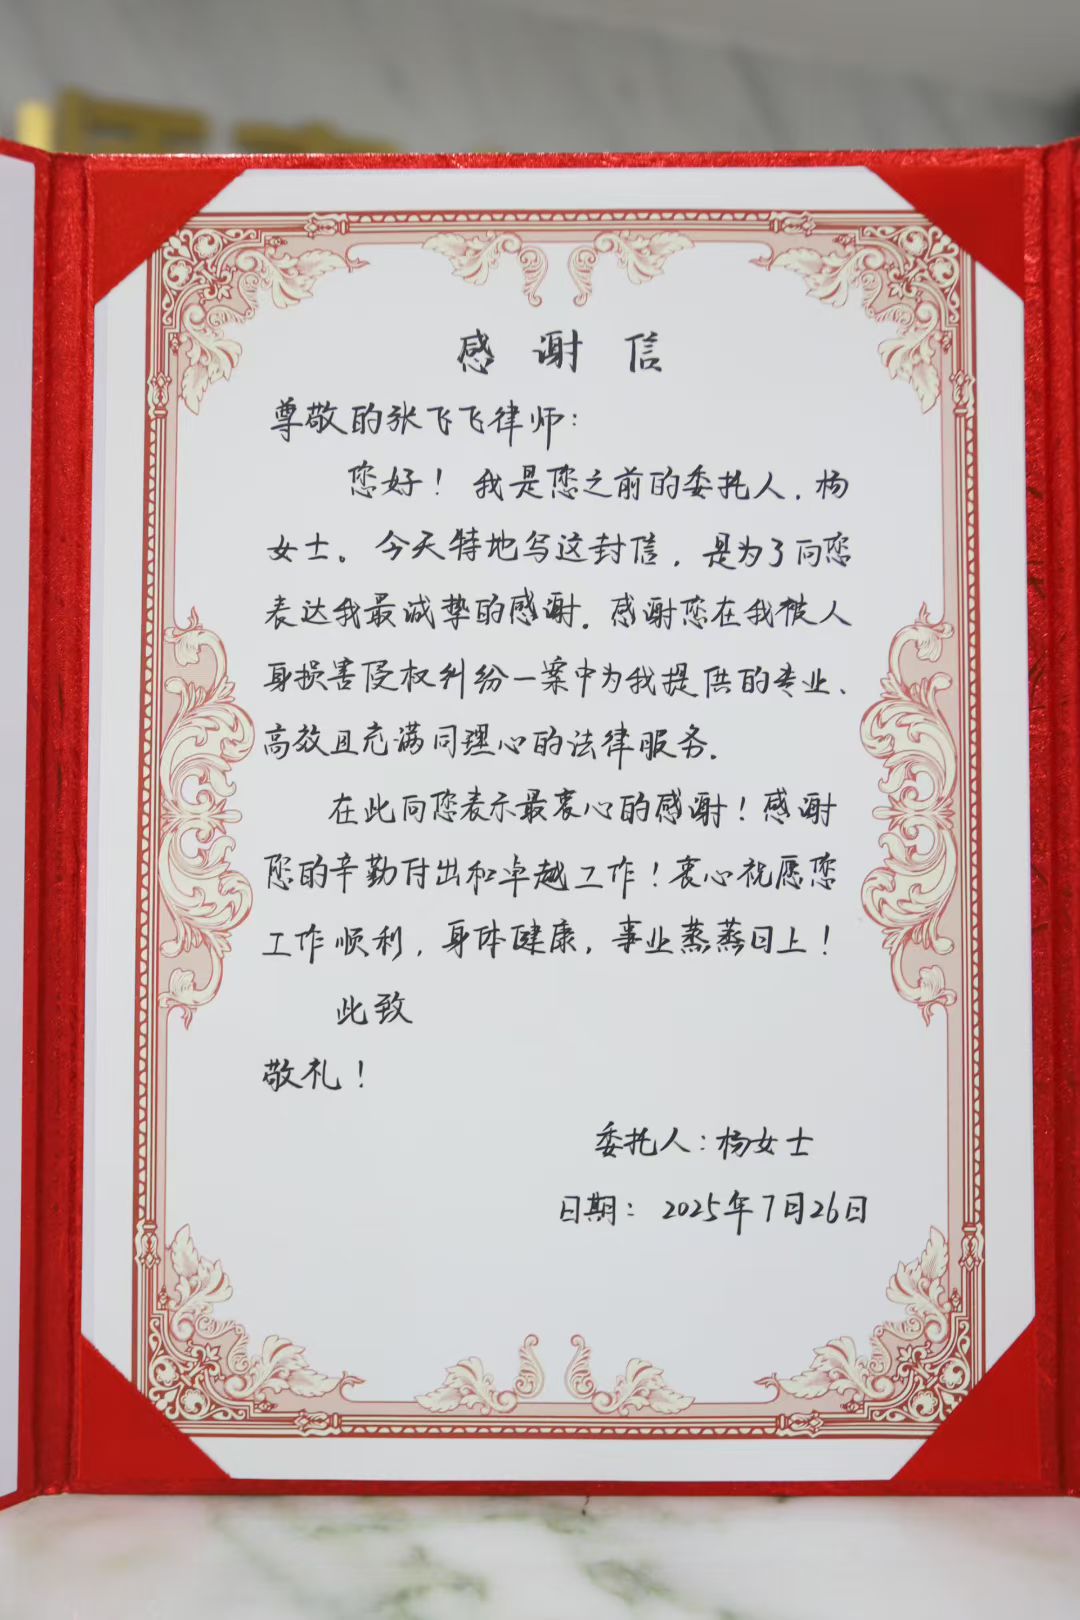 感谢信
尊敬的张飞飞律师：
您好！我是您之前的委托人，杨
女士。今天特地写这封信，是为了向您
表达我最诚挚的感谢。感谢您在我被人
身损害侵权纠纷一案中为我提供的专业、
高效且充满同理心的法律服务。
在此向您表示最衷心的感谢！感谢
您的辛勤付出和卓越工作！衷心祝愿您
工作顺利，身体健康，事业蒸蒸日上！
此致
敬礼！
委托人：杨女士
日期：2025年7月26日